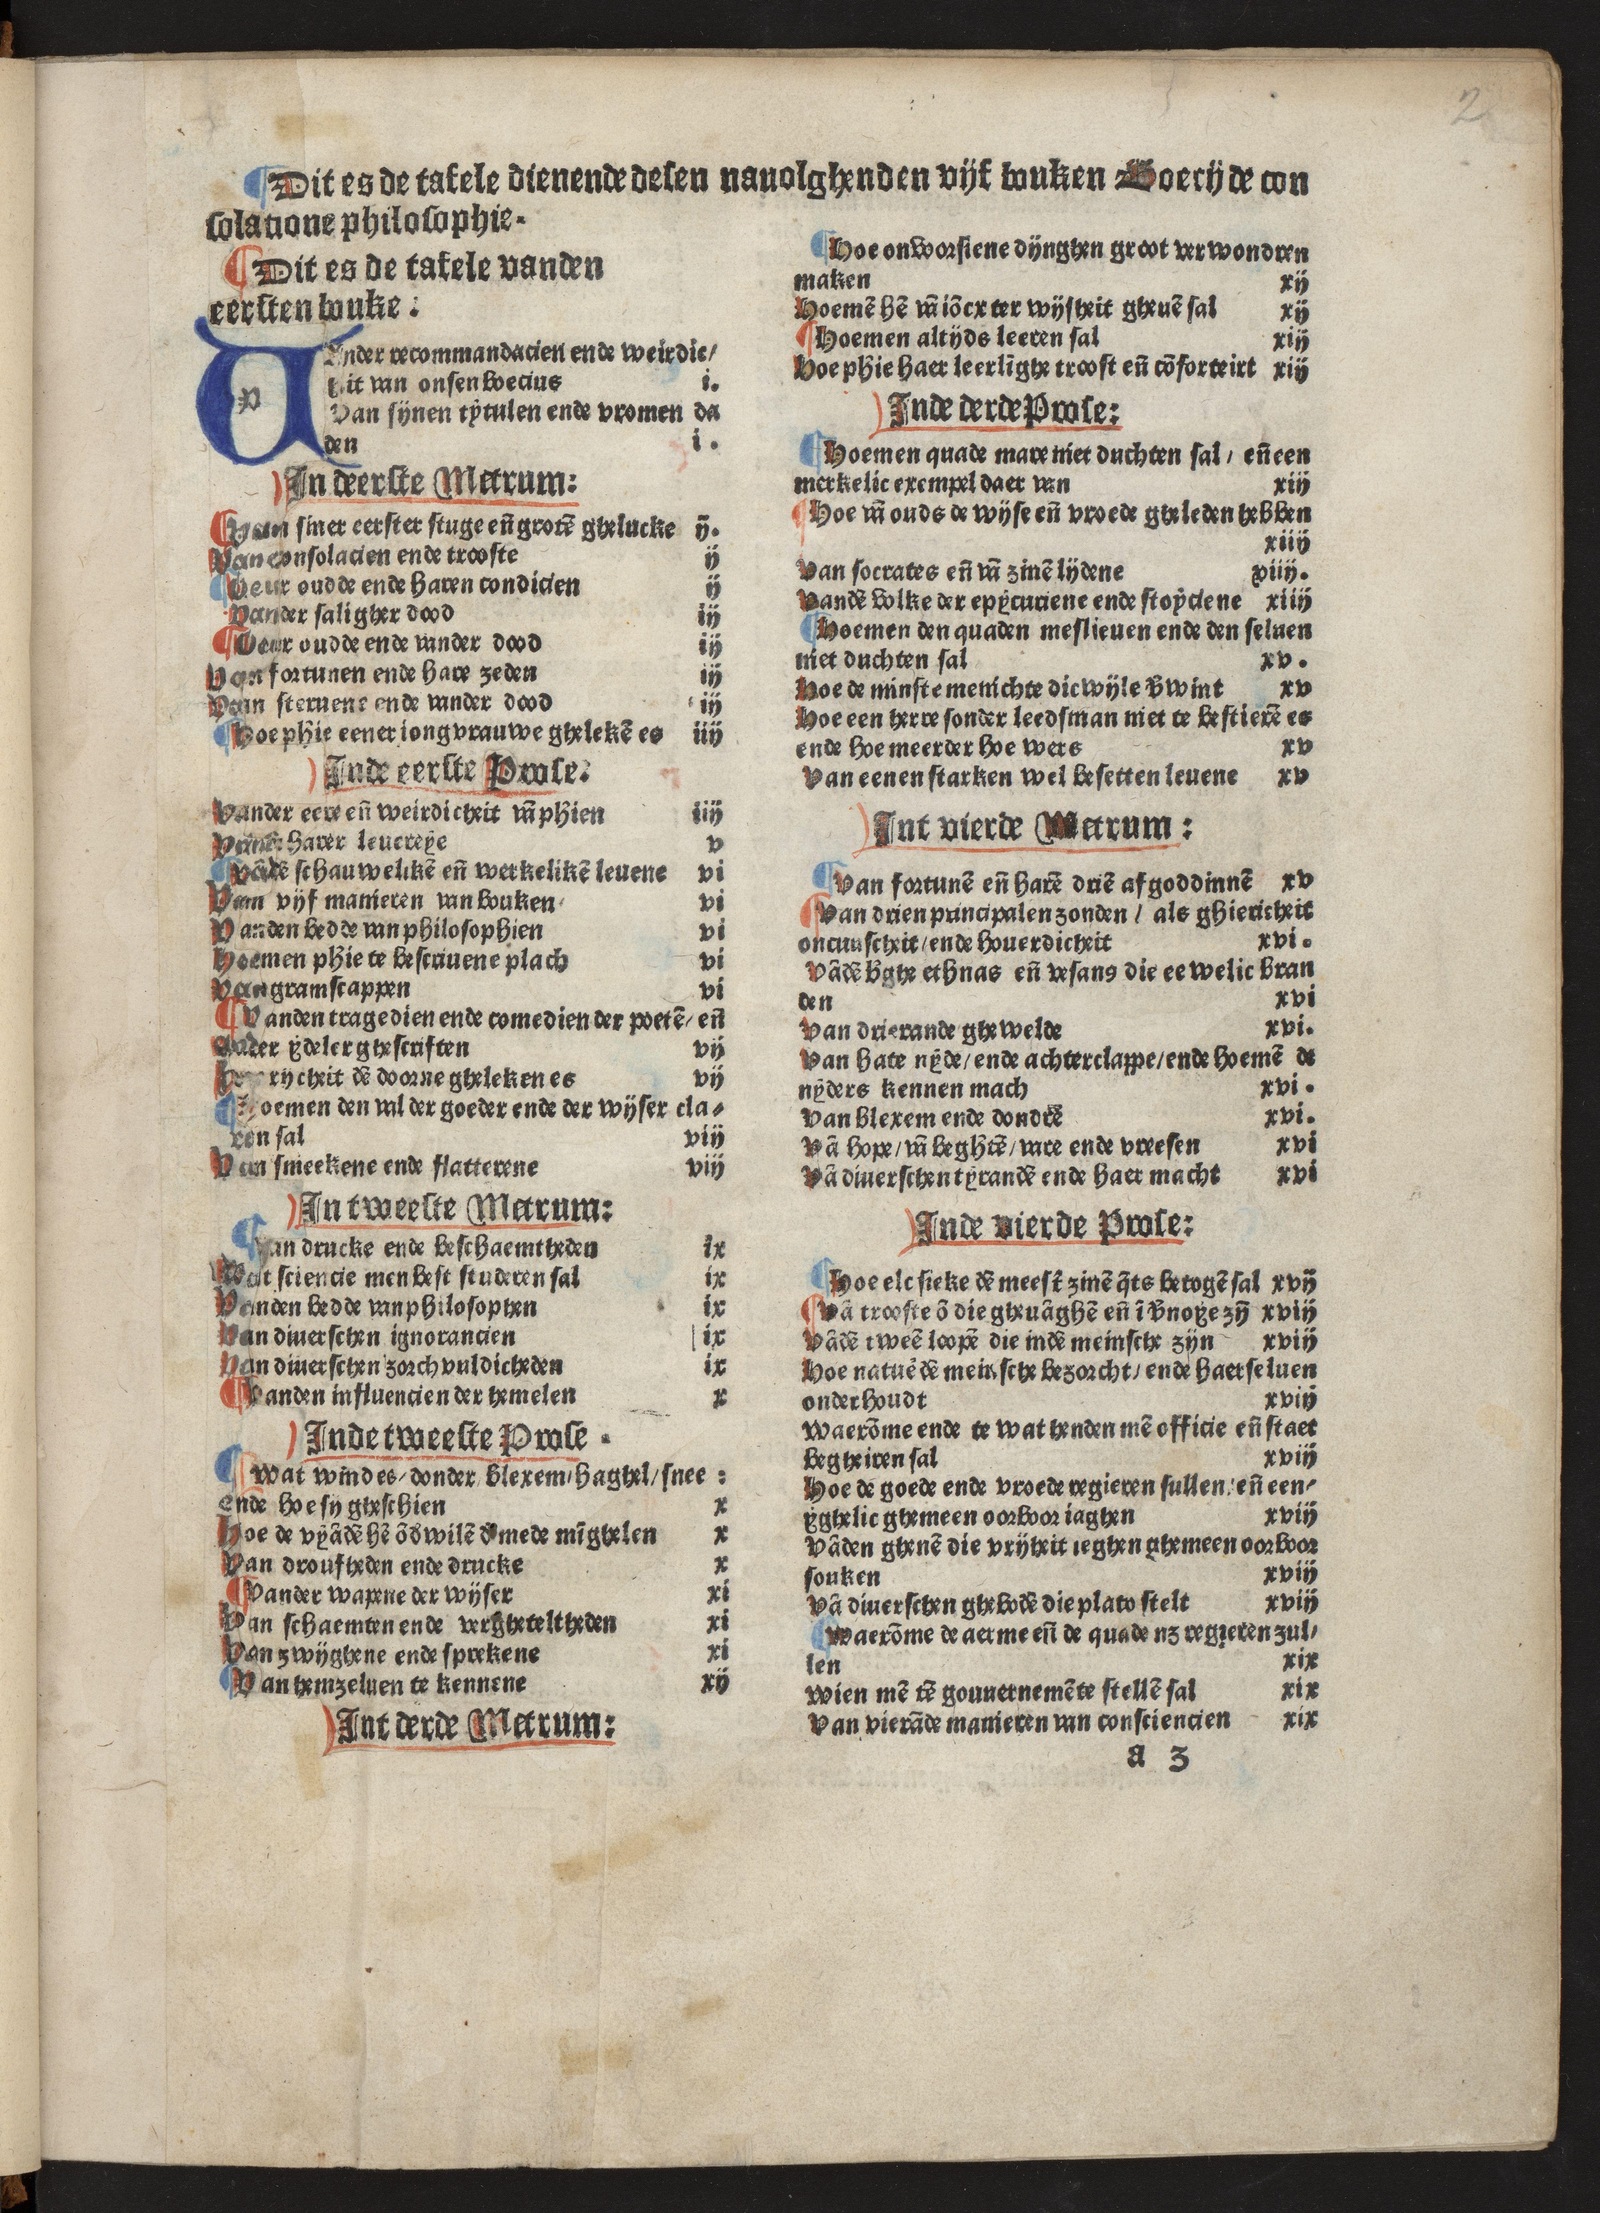 2
Dit es de tafele dienende desen nauolghenden vijf bouken Boecij de con
solatione philosophie.
Dit es de tafele vanden
eersten bouke:
Vander recommandacien ende weirdic/
heit van onsen boecius i.
Van sijnen tytulen ende vromen da
den i.
In deerste Metrum:
Van siner eerster stuge eñ grotē ghelucke ij.
Van consolacien ende trooste ij
Veur oudde ende haren condicien ij
Vander saligher dood iij
Veur oudde ende vander dood iij
Van fortunen ende hare zeden iij
Van steruene ende vander dood iij
Hoe phie eener iong vrauwe ghelekē es iiij
Inde eerste Prose:
Vander eere eñ weirdicheit vā phien iiij
harer leuereye v
Vādē schauwelikē eñ werkelikē leuene vi
Van vijf manieren van bouken vi
Vanden bedde van philosophien vi
Hoemen phie te bescriuene plach vi
Van gramscappen vi
Vanden tragedien ende comedien der poetē/ eñ
ander ydeler ghescriften vij
rijcheit dē doorne gheleken es vij
Hoemen den val der goeder ende der wijser cla/
ren sal viij
Van smeekene ende flatterene viij
In tweeste Metrum:
Van drucke ende beschaemtheden ix
Wat sciencie men best studeren sal ix
Vanden bedde van philosophen ix
Van diuerschen ignorancien ix
Van diuerschen zorchvuldicheden ix
Vanden influencien der hemelen x
Inde tweeste Prose.
Wat wind es/ donder/ blexem/ haghel/ snee:
ende hoe sy gheschien x
Hoe de vyādē hē ōdwilē dmede mīghelen x
Van droufheden ende drucke x
Vander wapene der wijser xi
Van schaemten ende vergheteltheden xi
Van zwijghene ende sprekene xi
Van hemzeluen te kennene xij
Int derde Metrum:
Hoe onvoorsiene dijnghen groot verwondren
maken xij
Hoemē hē vā iōcx ter wijsheit gheuē sal xij
Hoemen altijds leeren sal xiij
Hoe phie haer leerlīghe troost eñ cōforteirt xiij
Inde derde Prose:
Hoemen quade mare niet duchten sal/ eñ een
merkelic exempel daer van xiij
Hoe vā ouds de wijse eñ vroede gheleden hebben
xiiij
Van socrates eñ vā zinē lijdene xiiij.
Vandē volke der epycuriene ende stoyciene xiiij
Hoemen den quaden meslieuen ende den seluen
niet duchten sal xv.
Hoe de minste menichte dicwijle v̄wint xv
Hoe een herre sonder leedsman niet te bestierē es
ende hoe meerder hoe wers xv
Van eenen starken wel besetten leuene xv
Int vierde Metrum:
Van fortunē eñ harē driē afgoddinnē xv
Van drien principalen zonden/ als ghiericheit
oncuuscheit/ ende houerdicheit xvi.
Vādē b̄ghe ethnas eñ vesans die eewelic bran
den xvi
Van drierande ghewelde xvi.
Van hate nyde/ ende achterclappe/ ende hoemē de
nyders kennen mach xvi.
Van blexem ende dondrē xvi.
Vā hope/ vā begh̄tē/ vare ende vreesen xvi
Vā diuerschen tyrandē ende haer macht xvi
Inde vierde Prose:
Hoe elc sieke dē meest̄ zinē q̄ts betogē sal xvij
Vā trooste ō die gheuāghē eñ ī v̄noye zȳ xviij
Vādē tweē loopē die indē meinsche zijn xviij
Hoe natuē dē meinsche bezorcht/ ende haer seluen
onderhoudt xviij
Waerōme ende te wat henden mē officie eñ staet
begheiren sal xviij
Hoe de goede ende vroede regieren sullen: eñ een/
yghelic ghemeen oorboor iaghen xviij
Vāden ghenē die vrijheit ieghen ghemeen oorboor
souken xviij
Vā diuerschen ghebodē die plato stelt xviij
Waerōme de aerme eñ de quade nz regieren zul/
len xix
Wien mē tē gouuernemēte stellē sal xix
Van vierāde manieren van consciencien xix
a 3